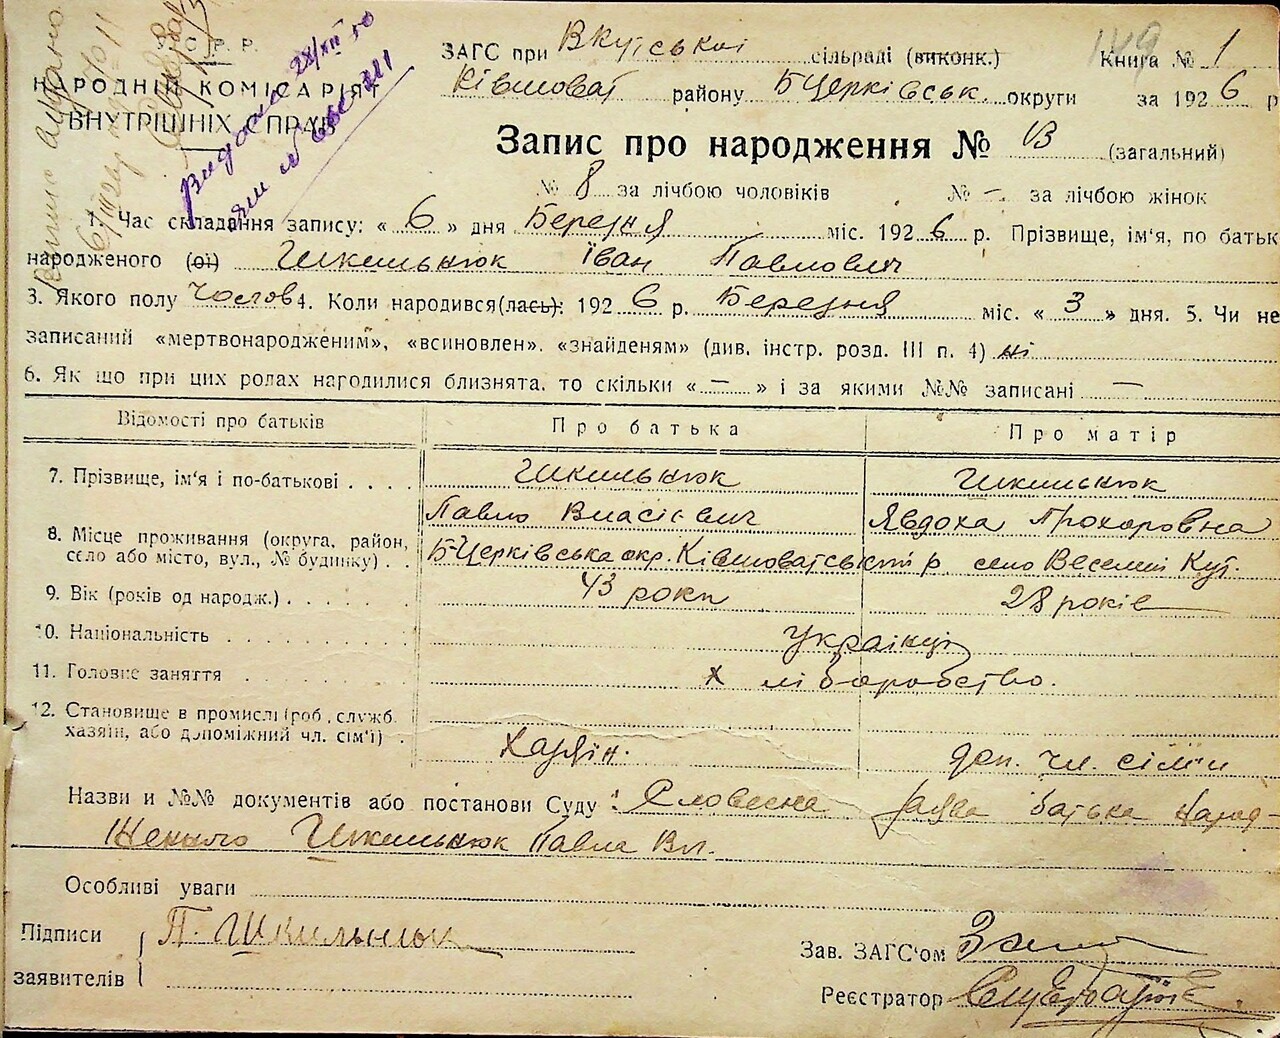 У. С. Р. Р.
НАРОДНІЙ КОМІСАРІЯТ
ВНУТРІШНІХ СПРАВ
Видано 28/XII 50
ЗАГС при В Кутської сільраді (виконк.) Книга № 1
149
Ківшоват району БЦерківськ. округи за 1926 р
Запис про народження № 13 (загальний)
№ 8 за лічбою чоловіків № — за лічбою жінок
1. Час складання запису: «6» дня Березня міс. 1926 р. Прізвище, ім'я, по батьк
народженого (ої) Шкильнюк Іван Павлович
3. Якого полу чолов 4. Коли народився(лась): 1926 р. Березня міс. «3» дня. 5. Чи не
записаний «мертвонародженим», «всиновлен», «знайденям» (див. інстр. розд. III п. 4) ні
6. Як що при цих родах народилися близнята, то скільки «—» і за якими №№ записані —
Відомості про батьків Про батька Про матір
7. Прізвище, ім'я і по-батькові . . . . Шкильнюк Шкильнюк
Павло Власієвич Явдоха Прохоровна
8. Місце проживання (округа, район,
село або місто, вул., № будинку) . . Б-Церківська окр. Ківшоватський р. село Веселий Кут.
9. Вік (років од народж.) . . . . . . 43 роки 28 років
10. Національність . . . . . . . . . Українці
11. Головне заняття . . . . . . . . хліборобство.
12. Становище в промислі (роб., служб.
хазяїн, або допоміжний чл. сім'ї) . Хазяїн. доп. чл. сім'ї
Назви и №№ документів або постанови Суду: Словесна заява батька народ-
женого Шкильнюк Павла Вл.
Особливі уваги
Підписи
заявителів
П. Шкильнюк
Зав. ЗАГС'ом
Реєстратор